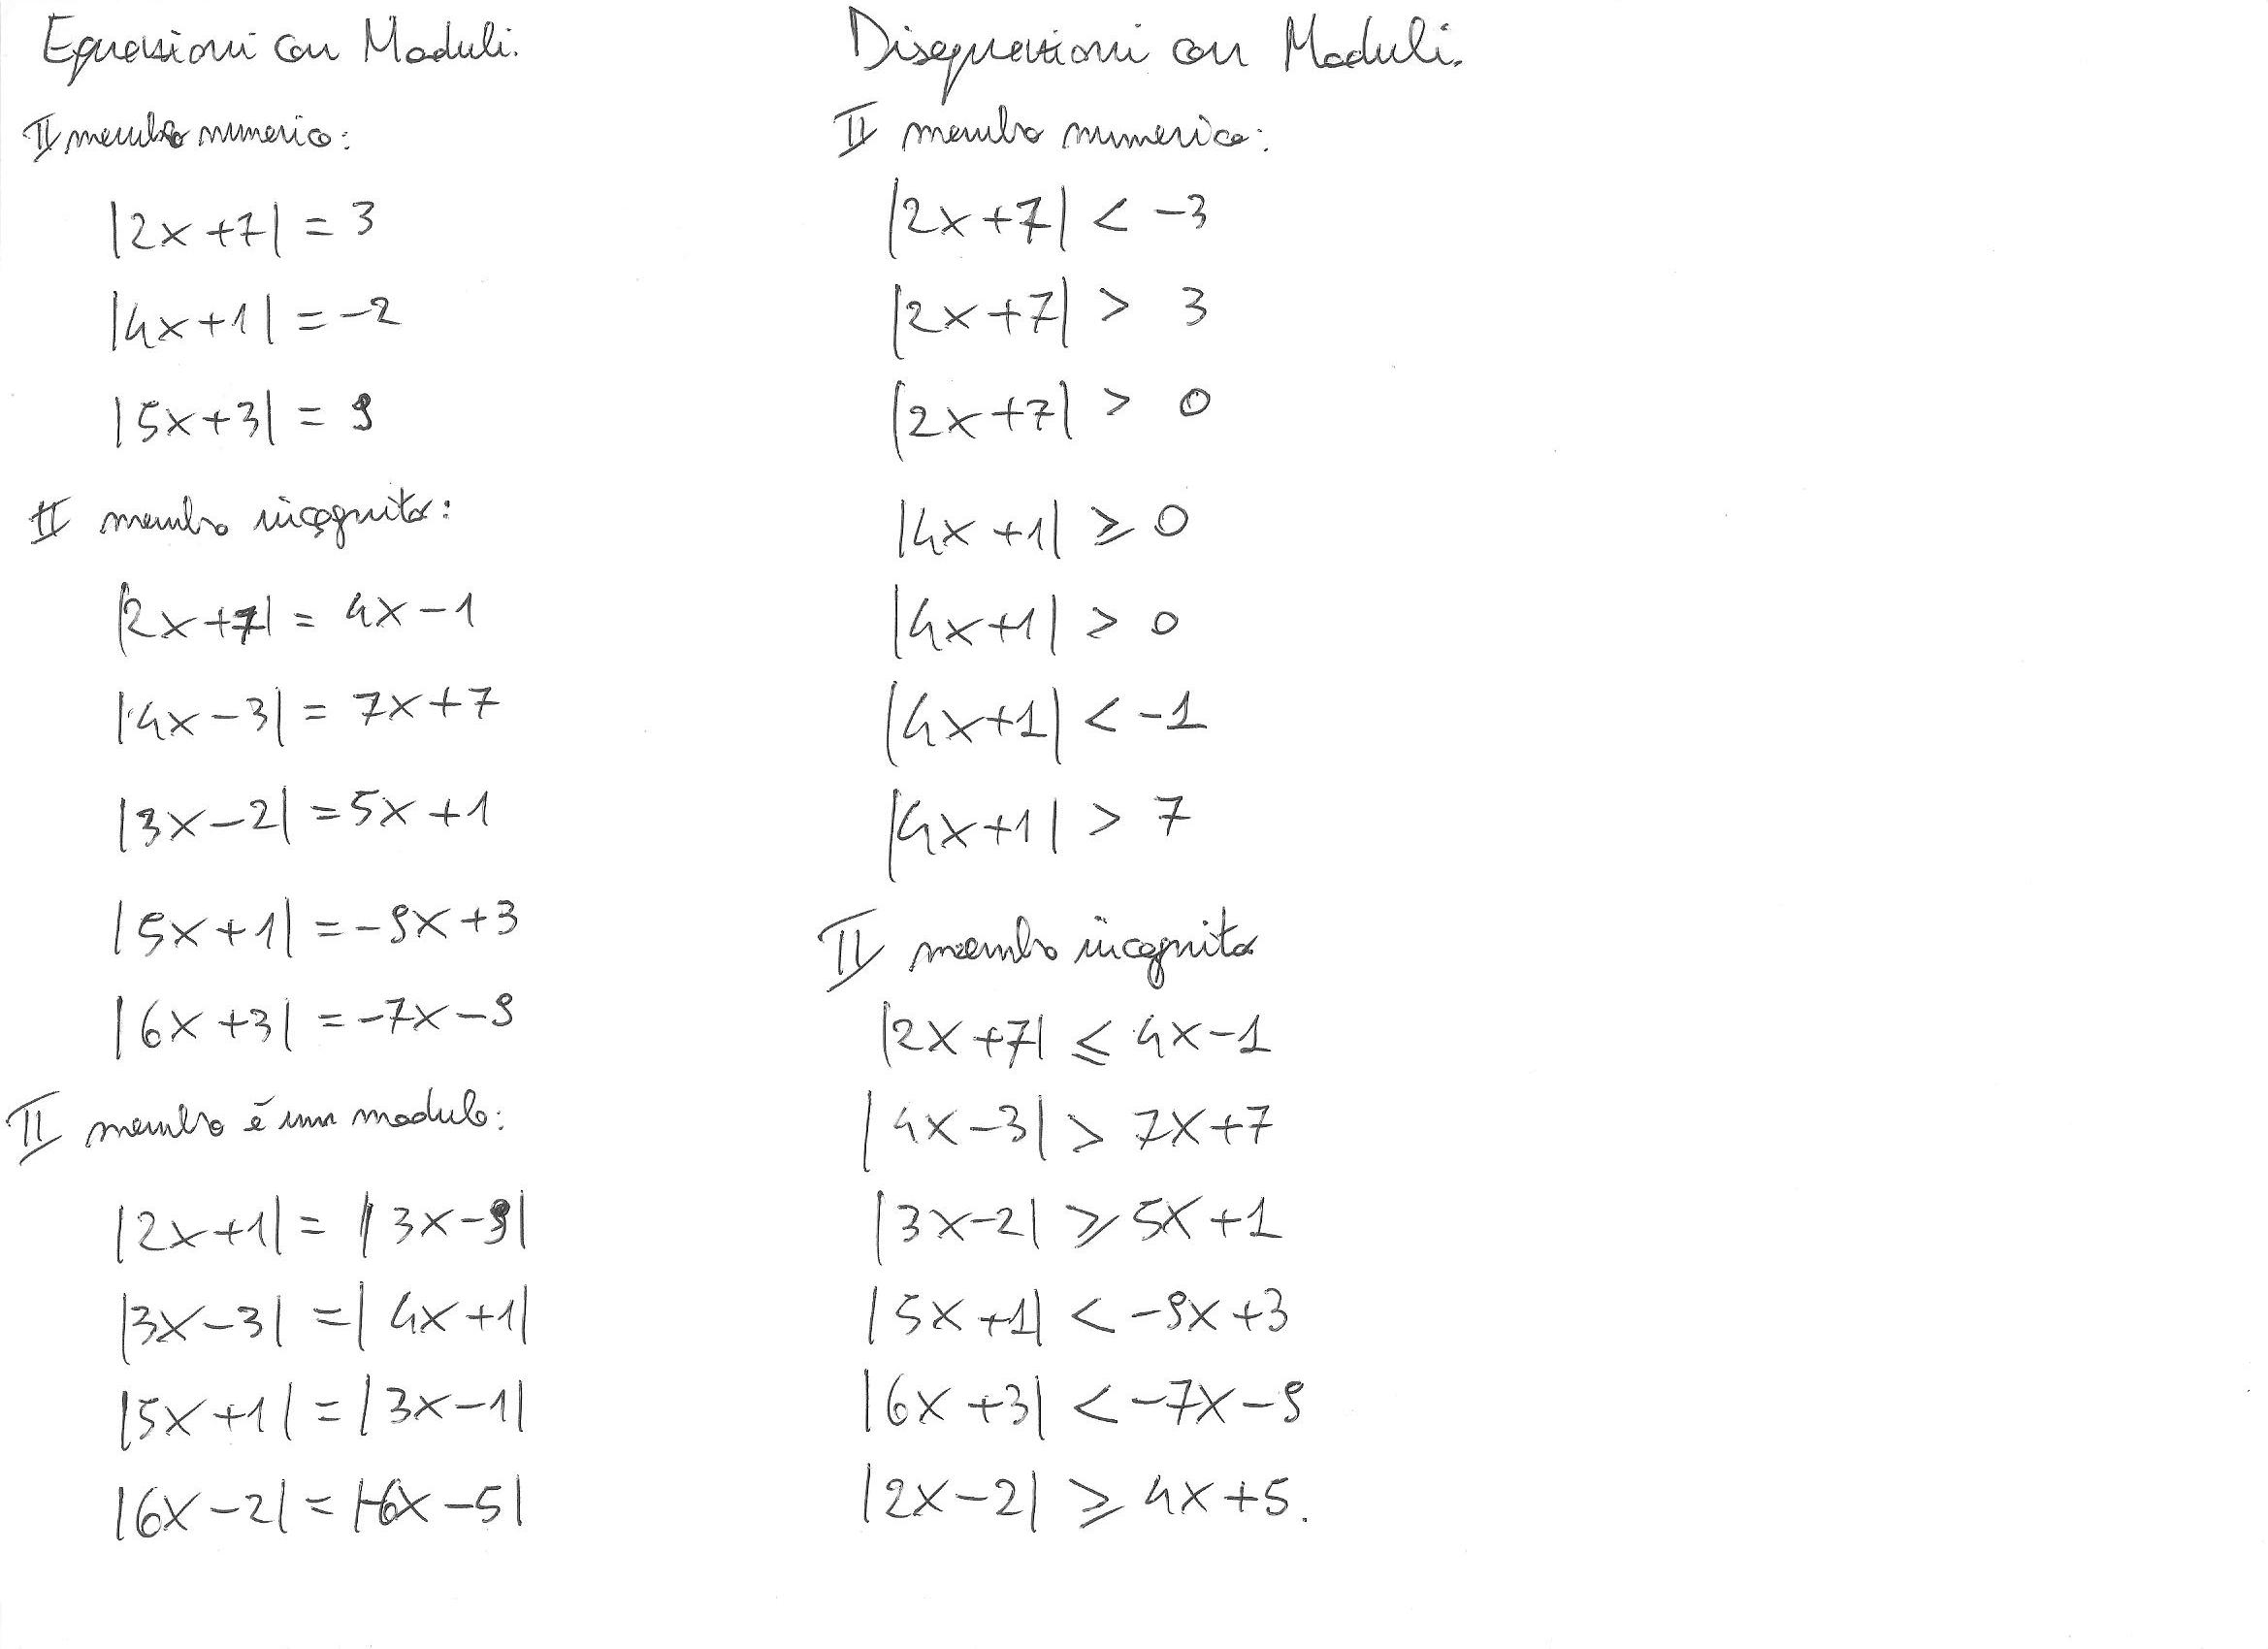 Equazioni con Moduli.
II membro numerico:
|2x+7| = 3
|4x+1| = -2
|5x+3| = 9
II membro incognito:
|2x+7| = 4x-1
|4x-3| = 7x+7
|3x-2| = 5x+1
|5x+1| = -9x+3
|6x+3| = -7x-9
II membro è un modulo:
|2x+1| = |3x-9|
|3x-3| = |4x+1|
|5x+1| = |3x-1|
|6x-2| = |-6x-5|
Disequazioni con Moduli.
II membro numerico:
|2x+7| < -3
|2x+7| > 3
|2x+7| > 0
|4x+1| ≥ 0
|4x+1| > 0
|4x+1| < -1
|4x+1| > 7
II membro incognito
|2x+7| ≤ 4x-1
|4x-3| > 7x+7
|3x-2| ≥ 5x+1
|5x+1| < -9x+3
|6x+3| < -7x-9
|2x-2| ≥ 4x+5.